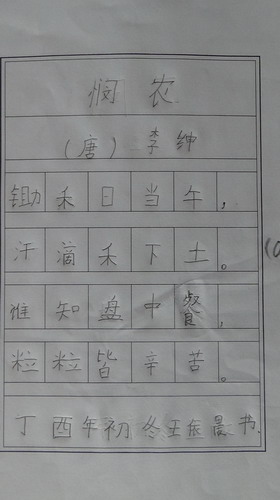 悯农
(唐) 李绅
锄禾日当午,
汗滴禾下土。
谁知盘中餐,
粒粒皆辛苦。
丁酉年初冬王依晨书.